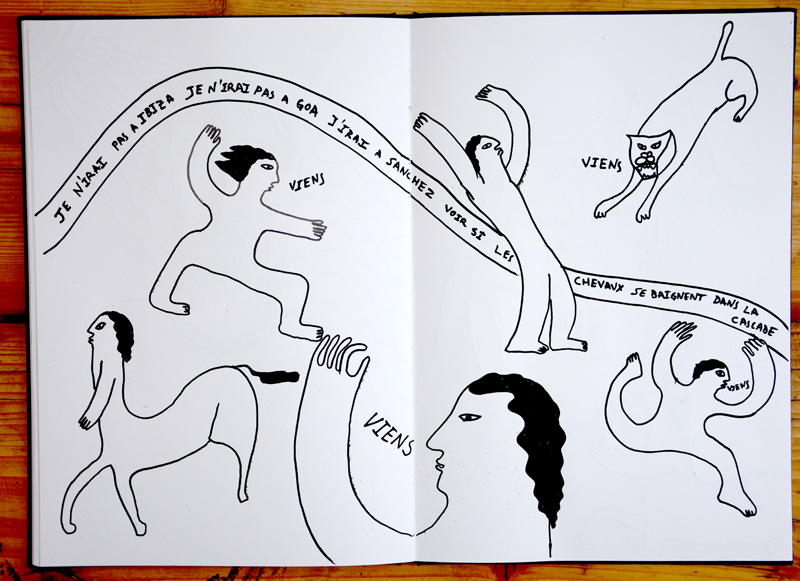 JE N'IRAI PAS A IBIZA JE N'IRAI PAS A GOA J'IRAI A SANCHEZ VOIR SI LES CHEVAUX SE BAIGNENT DANS LA
CASCADE
VIENS
VIENS
VIENS
VIENS